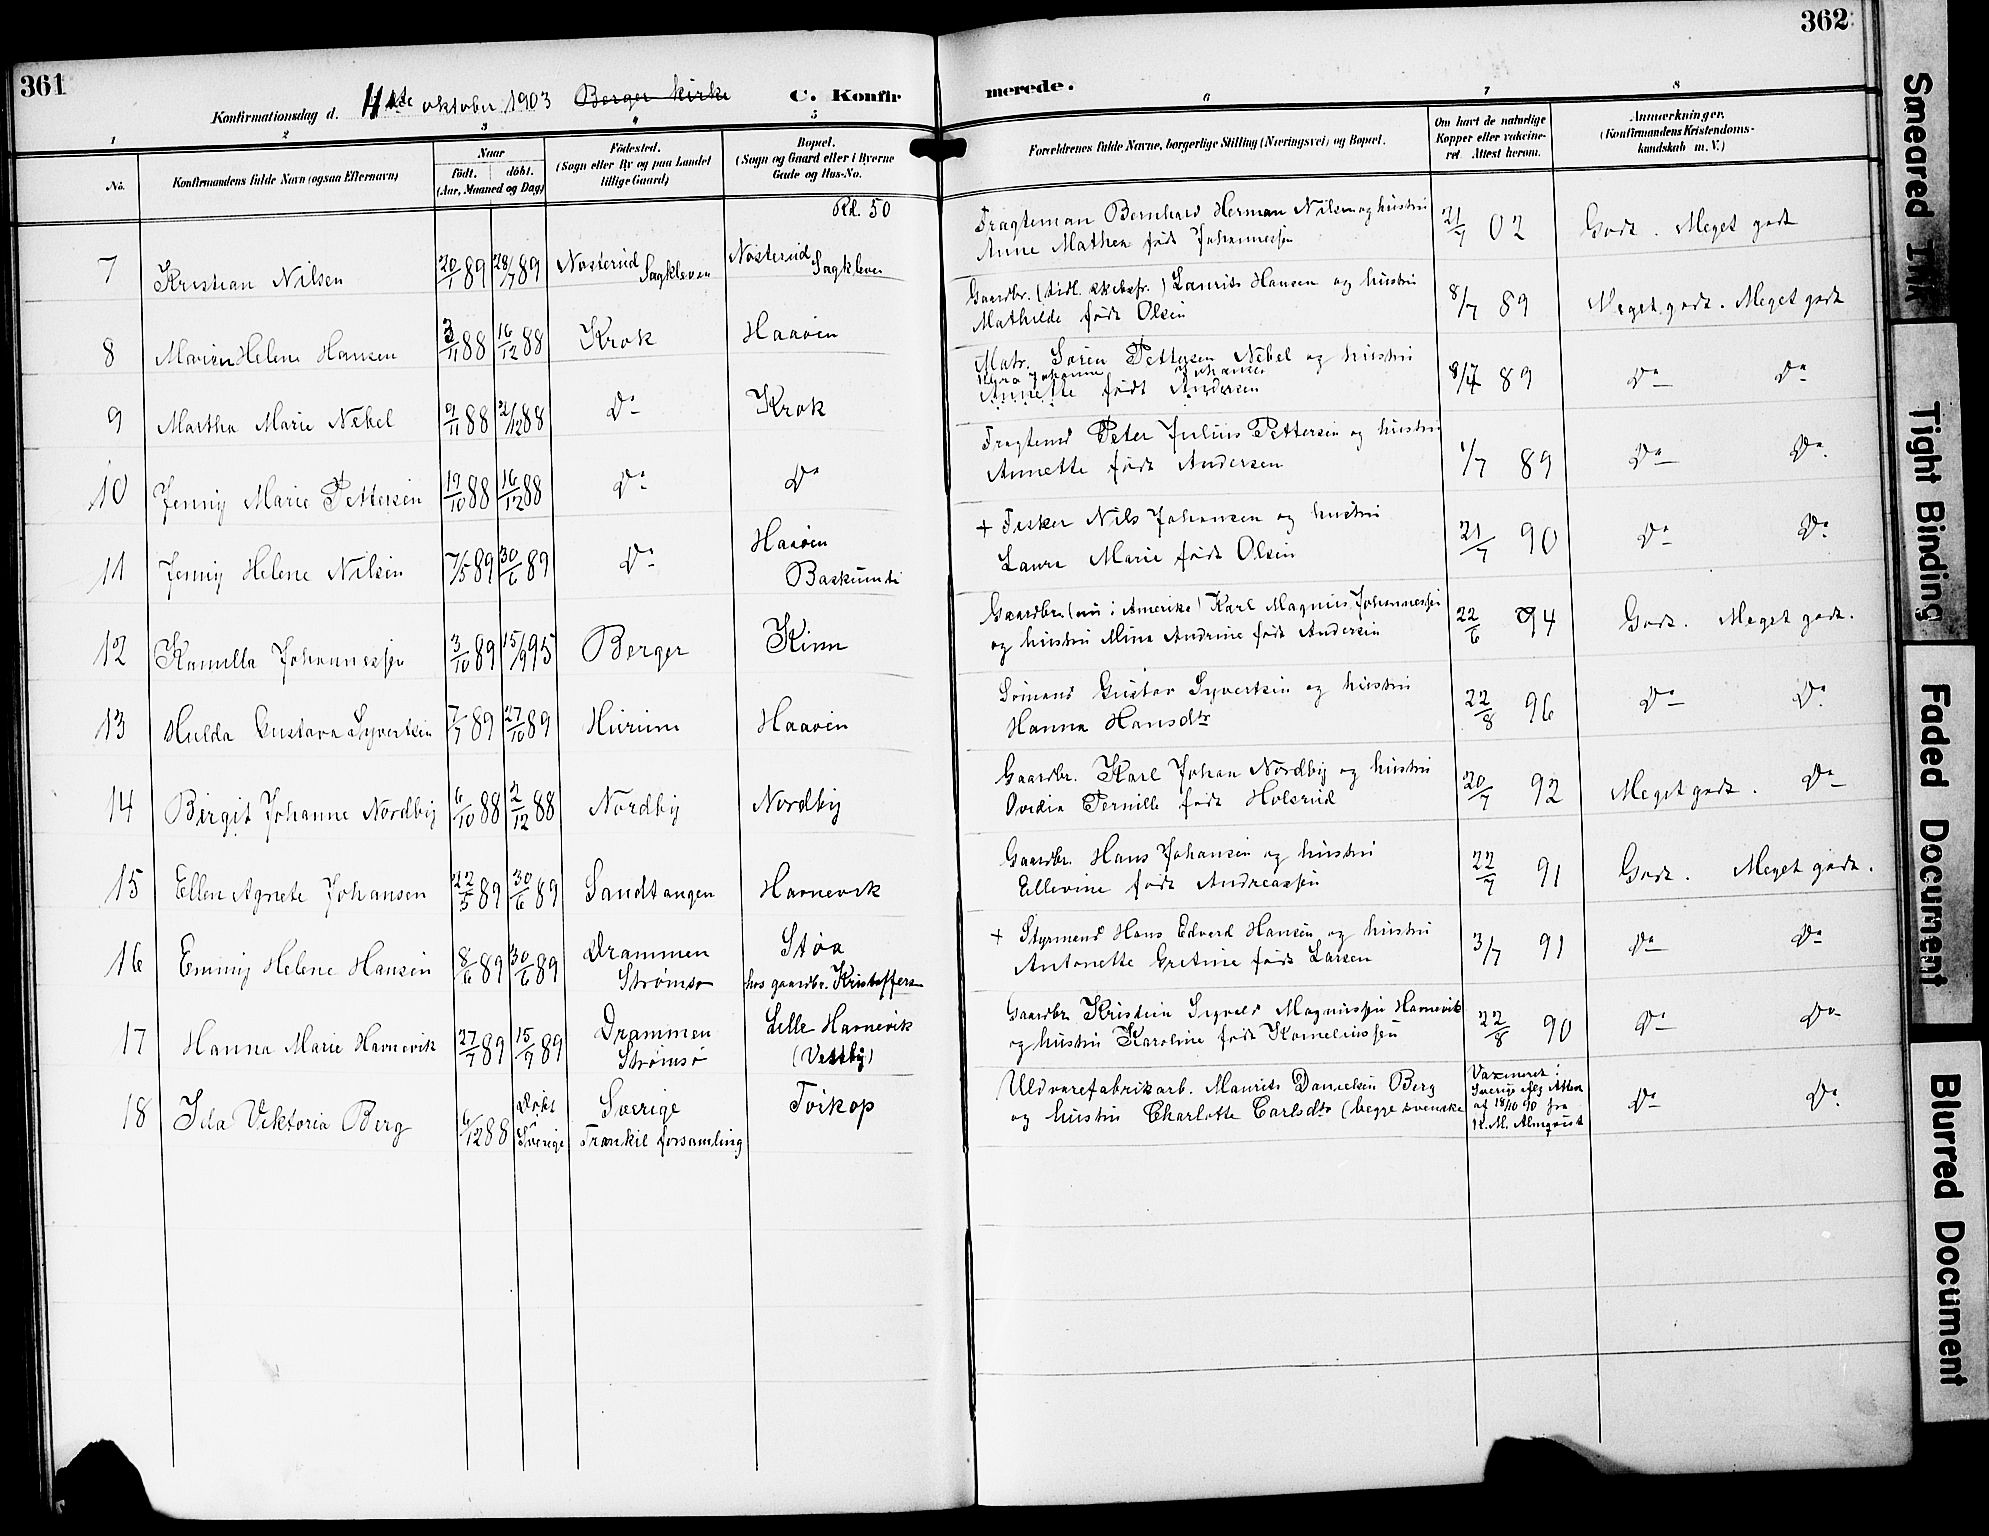 361
Konfirmationsdag d. 11te oktober 1903 Berger kirke
C. Konfir
1 2 3 4 5
No.
Konfirmandens fulde Navn (ogsaa Efternavn)
Naar
födt. döbt.
(Aar, Maaned og Dag)
Födested.
(Sogn eller By og paa Landet
tillige Gaard)
Bopæl.
(Sogn og Gaard eller i Byerne
Gade og Hus-No.
Rd. 50
7 Kristian Nilsen 20/1 89 28/7 89 Nosterud Sagkleven Nosterud Sagkleven
8 Marien Helene Hansen 3/11 88 16/12 88 Krok Haaven
9 Martha Marie Nebel 9/11 88 2/12 88 Do Krok
10 Jenny Marie Pettersen 19/10 88 16/12 88 Do Do
11 Jenny Helene Nilsen 7/5 89 30/6 89 Do Haaven
12 Kamilla Johannessen 3/10 89 15/9 95 Berger Kinn
13 Hulda Gustava Syvertsen 7/7 89 27/10 89 Hurum Haaven
14 Birgit Johanne Nordby 6/10 88 2/12 88 Nordby Nordby
15 Ellen Agnete Johansen 22/5 89 30/6 89 Sandtangen Havnevik
16 Emmy Helene Hansen 8/6 89 30/6 89 Drammen Støa
Strømsø hos gaardbr. Kristoffers
17 Hanna Marie Havnevik 27/7 89 15/9 89 Drammen Lille Havnevik
Strømsø (Vestby)
18 Ida Viktoria Berg 6/12 88 Döbt Sverige Toikop
Sverige Trankil forsamling
362
merede.
6 7 8
Forældrenes fulde Navne, borgerlige Stilling (Næringsvei) og Bopæl.
Om havt de naturlige
Kopper eller vakcine-
ret Attest herom.
Anmærkninger,
(Konfirmandens Kristendoms-
kundskab m. V.)
Fragteman Bernhard Herman Nilsen og hustru 21/7 02 Godt. Meget godt
Anne Mathea født Johannessen
Gaardbr. (tidl. skibsfr.) Laurits Hansen og hustru 8/7 89 Meget godt. Meget godt
Mathilde født Olsen
Matr. Søren Pettersen Nebel og hustru 8/7 89 Do Do
Johanne Johansen
Annette født Andersen
Fragtemd Peter Julius Pettersen og hustru 1/7 89 Do Do
Annette født Andersen
+ Fisker Nils Johansen og hustru 21/7 90 Do Do
Laura Marie født Olsen
Gaardbr. (nu i Amerika) Karl Magnus Johannessen 22/6 94 Godt. Meget godt.
og hustru Mina Andrine født Andersen
Sømand Gustav Syvertsen og hustru 22/8 96 Do Do
Hanna Hansdtr
Gaardbr. Karl Johan Nordby og hustru 20/7 92 Meget godt. Do
Ovidia Pernille født Holsrud
Gaardbr. Hans Johansen og hustru 22/7 91 Godt. Meget godt.
Ellevine født Andreassen
+ Styrmand Hans Edvard Hansen og hustru 3/7 91 Do Do
Antonette Gretine født Larsen
Gaardbr. Kristian Sigvald Magnussen Havnevik 22/8 90 Do Do
og hustru Karoline født Korneliussen
Uldvarefabrikarb. Maurits Danielsen Berg Vaccineret i Do Do
og hustru Charlotte Carlsdtr (begge svenske Sverige
af 18/10 90 fra
K. M. Almqvist
Smeared Ink
Tight Binding
Faded Document
Blurred Document